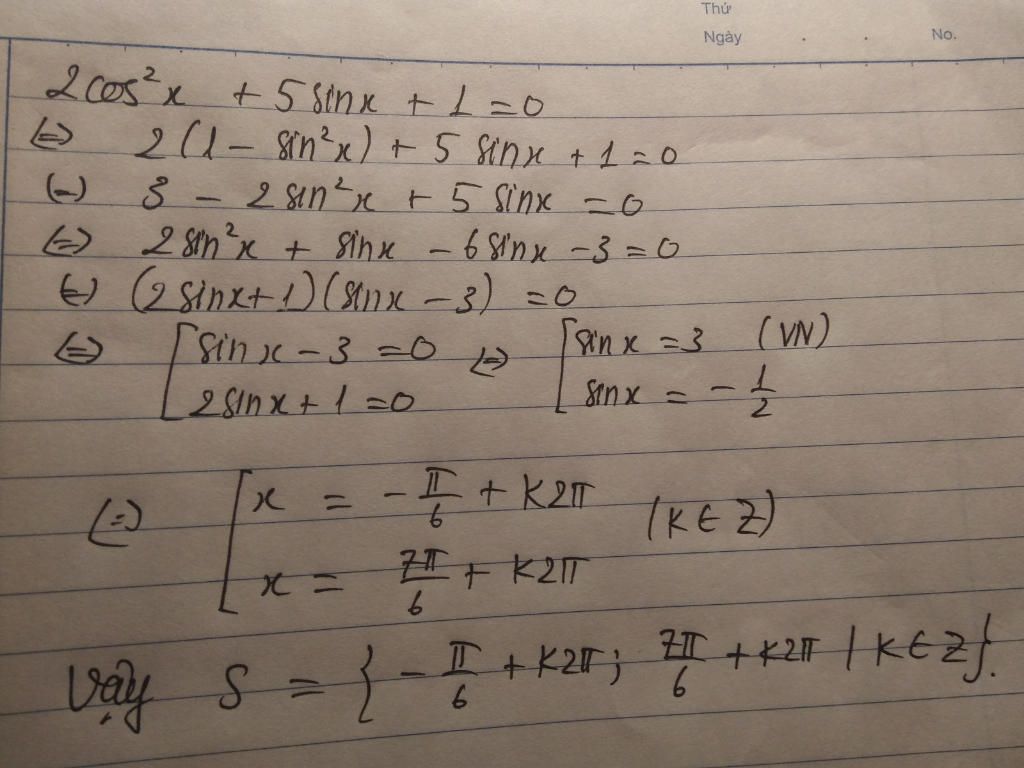 Thứ
Ngày . . No.
2cos²x + 5sinx + 1 = 0
⇔ 2(1 - sin²x) + 5 sinx + 1 = 0
(-) 3 - 2sin²x + 5 sinx = 0
⇔ 2sin²x + sinx - 6sinx - 3 = 0
⇔ (2sinx+1)(sinx - 3) = 0
⇔ [ sinx - 3 = 0 ⇔ [ sinx = 3 (VN)
2sinx + 1 = 0 sinx = - 1/2
⇔ [ x = - π/6 + K2π (K ∈ Z)
x = 7π/6 + K2π
Vậy S = { - π/6 + K2π; 7π/6 + K2π | K ∈ Z }.